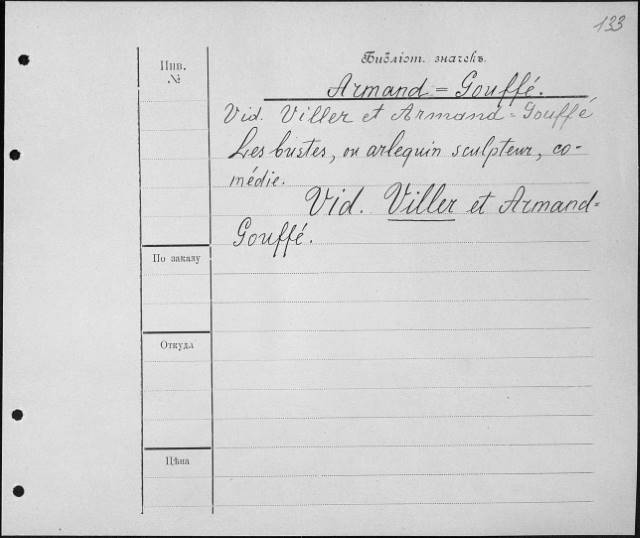 133
Инв.
№
Библіот. значекъ.
Armand = Gouffé.
Vid. Viller et Armand = Gouffé
Les bustes, ou arlequin sculpteur, co-
médie.
Vid. Viller et Armand=
Gouffé.
По заказу
Откуда
Цѣна